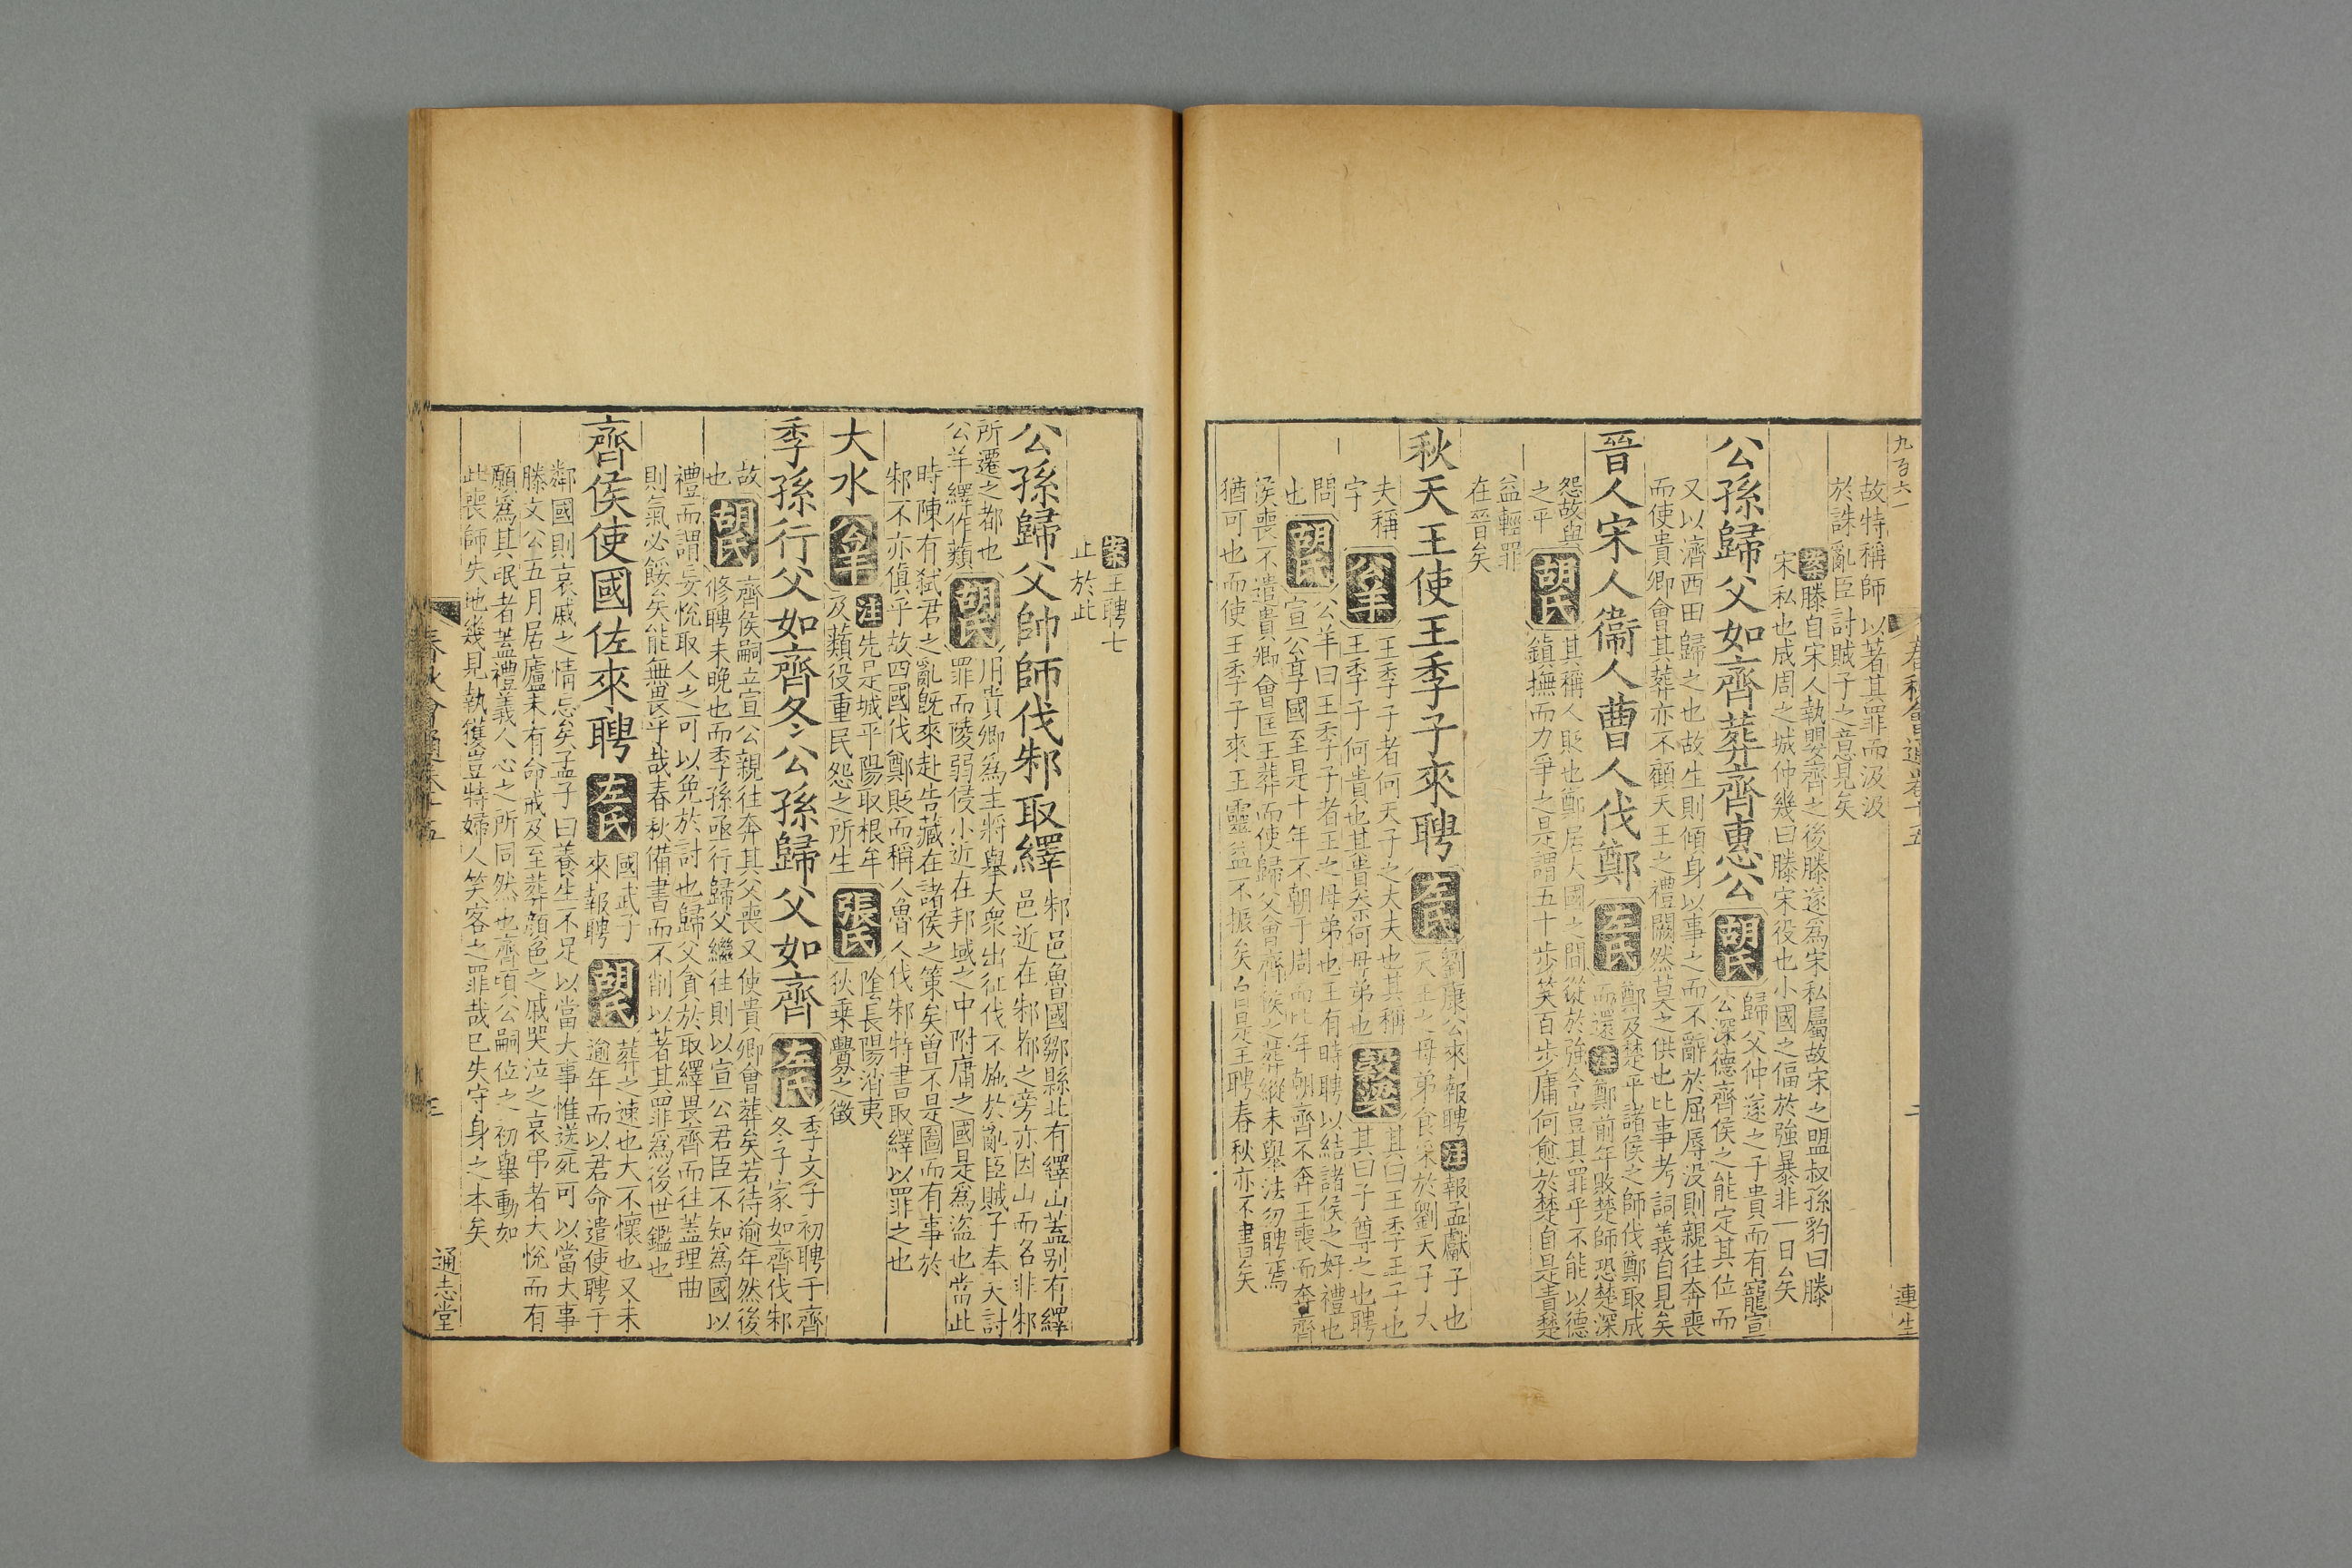 九百六一
春秋會通卷十五
二
連生
故特稱師以著其罪而汲汲
於誅亂臣討賊子之意見矣
案滕自宋人執嬰齊之後滕遂爲宋私屬故宋之盟叔孫豹曰滕
宋私也成周之城仲幾曰滕宋役也小國之偪於強暴非一日矣
公孫歸父如齊葬齊惠公
胡氏
歸父仲遂之子貴而有寵宣
公深德齊侯之能定其位而
又以濟西田歸之也故生則傾身以事之而不辭於屈辱没則親往奔喪
而使貴卿會其葬亦不顧天王之禮闕然莫之供也比事考詞義自見矣
晉人宋人衞人曹人伐鄭
左氏
鄭及楚平諸侯之師伐鄭取成
而還注鄭前年敗楚師恐楚深
怨故與
之平
胡氏
其稱人貶也鄭居大國之間從於強令豈其罪乎不能以德
鎮撫而力爭之是謂五十步笑百步庸何愈於楚自是責楚
益輕罪
在晉矣
秋天王使王季子來聘
左氏
劉康公來報聘注報孟獻子也
天王之母弟食采於劉天子大
夫稱
字
公羊
王季子者何天子之大夫也其稱
王季子何貴也其貴奈何母弟也
穀梁
其曰王季王子也
其曰子尊之也聘
問
也
胡氏
公羊曰王季子者王之母弟也王有時聘以結諸侯之好禮也
宣公享國至是十年不朝于周而比年朝齊不奔王喪而奔齊
侯喪不遣貴卿會匡王葬而使歸父會齊侯之葬縱未舉法勿聘焉
猶可也而使王季子來王靈益不振矣自是王聘春秋亦不書矣
案王聘七
止於此
公孫歸父帥師伐邾取繹
邾邑魯國鄒縣北有繹山蓋别有繹
邑近在邾都之旁亦因山而名非邾
所遷之都也
公羊繹作蘱
胡氏
用貴卿爲主將舉大衆出征伐不施於亂臣賊子奉天討
罪而陵弱侵小近在邦域之中附庸之國是爲盗也當此
時陳有弒君之亂旣來赴告藏在諸侯之策矣曾不是圖而有事於
邾不亦傎乎故四國伐鄭貶而稱人魯人伐邾特書取繹以罪之也
大水
公羊
注先是城平陽取根牟
及蘱役重民怨之所生
張氏
陰長陽消夷
狄乗釁之徵
季孫行父如齊冬公孫歸父如齊
左氏
季文子初聘于齊
冬子家如齊伐邾
故
也
胡氏
齊侯嗣立宣公親往奔其父喪又使貴卿會葬矣若待逾年然後
修聘未晚也而季孫亟行歸父繼往則以宣公君臣不知為國以
禮而謂妄悅取人之可以免於討也歸父貪於取繹畏齊而往蓋理曲
則氣必餒矣能無畏乎哉春秋備書而不削以著其罪爲後世鑑也
齊侯使國佐來聘
左氏
國武子
來報聘
胡氏
葬之速也大不懷也又未
逾年而以君命遣使聘于
鄰國則哀戚之情忘矣孟子曰養生不足以當大事惟送死可以當大事
滕文公五月居廬未有命戒及至葬顏色之戚哭泣之哀弔者大悅而有
願爲其氓者蓋禮義人心之所同然也齊頃公嗣位之初舉動如
此喪師失地幾見執獲豈特婦人笑客之罪哉已失守身之本矣
春秋會通卷十五
三
通志堂